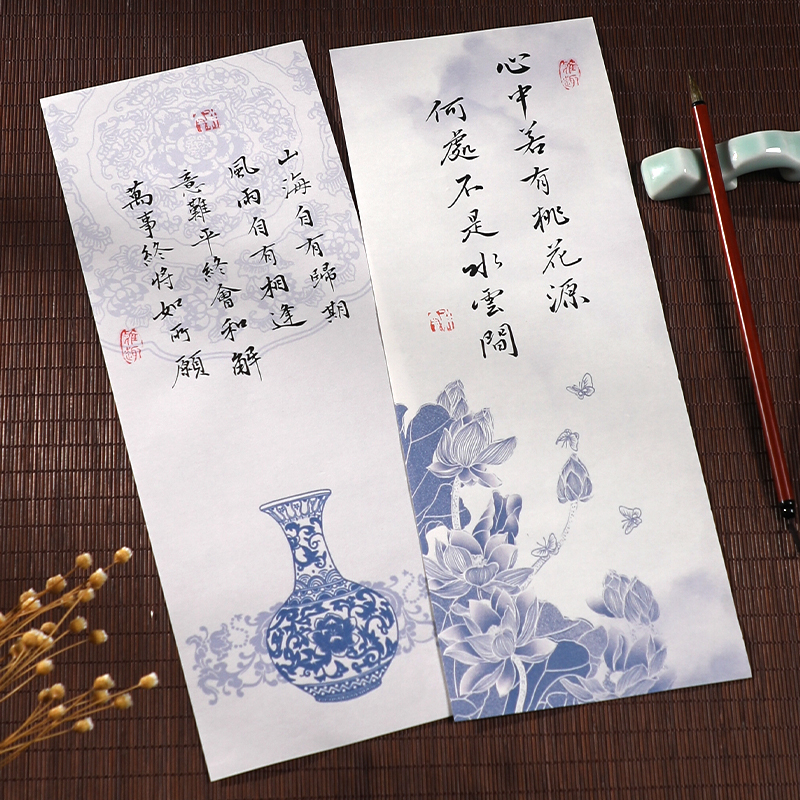 山海自有歸期
風雨自有相逢
意難平終會和解
萬事終將如所願
心中若有桃花源
何處不是水雲間